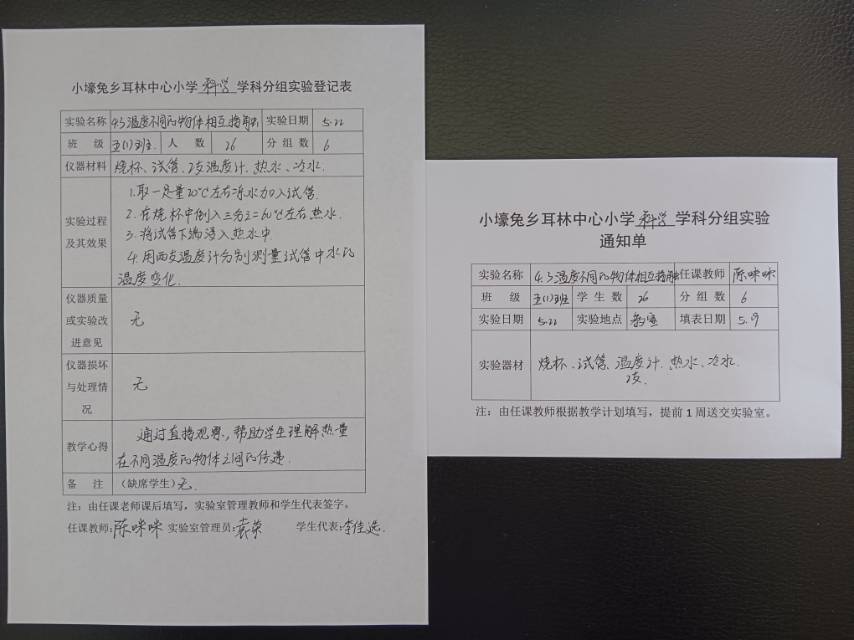 小壕兔乡耳林中心小学 科学 学科分组实验登记表
实验名称 4.3温度不同的物体相互接触 实验日期 5.22
班 级 五(1)班 人 数 26 分 组 数 6
仪器材料 烧杯、试管、2支温度计、热水、冷水.
实验过程及其效果
1.取一定量20℃左右冷水加入试管.
2.在烧杯中倒入三分之二60℃左右热水.
3.将试管下端浸入热水中
4.用两支温度计分别测量试管中水的
温度变化.
仪器质量或实验改进意见 无
仪器损坏与处理情况 无
教学心得 通过直接观察,帮助学生理解热量
在不同温度的物体之间的传递.
备 注 (缺席学生)无.
注:由任课老师课后填写,实验室管理教师和学生代表签字。
任课教师:陈咪咪 实验室管理员:袁荣 学生代表:李佳
小壕兔乡耳林中心小学 科学 学科分组实验
通知单
实验名称 4.3温度不同的物体相互接触 任课教师 陈咪咪
班 级 五(1)班 学 生 数 26 分 组 数 6
实验日期 5.22 实验地点 教室 填表日期 5.9
实验器材 烧杯、试管、温度计、热水、冷水.
2支.
注:由任课教师根据教学计划填写,提前1周送交实验室。